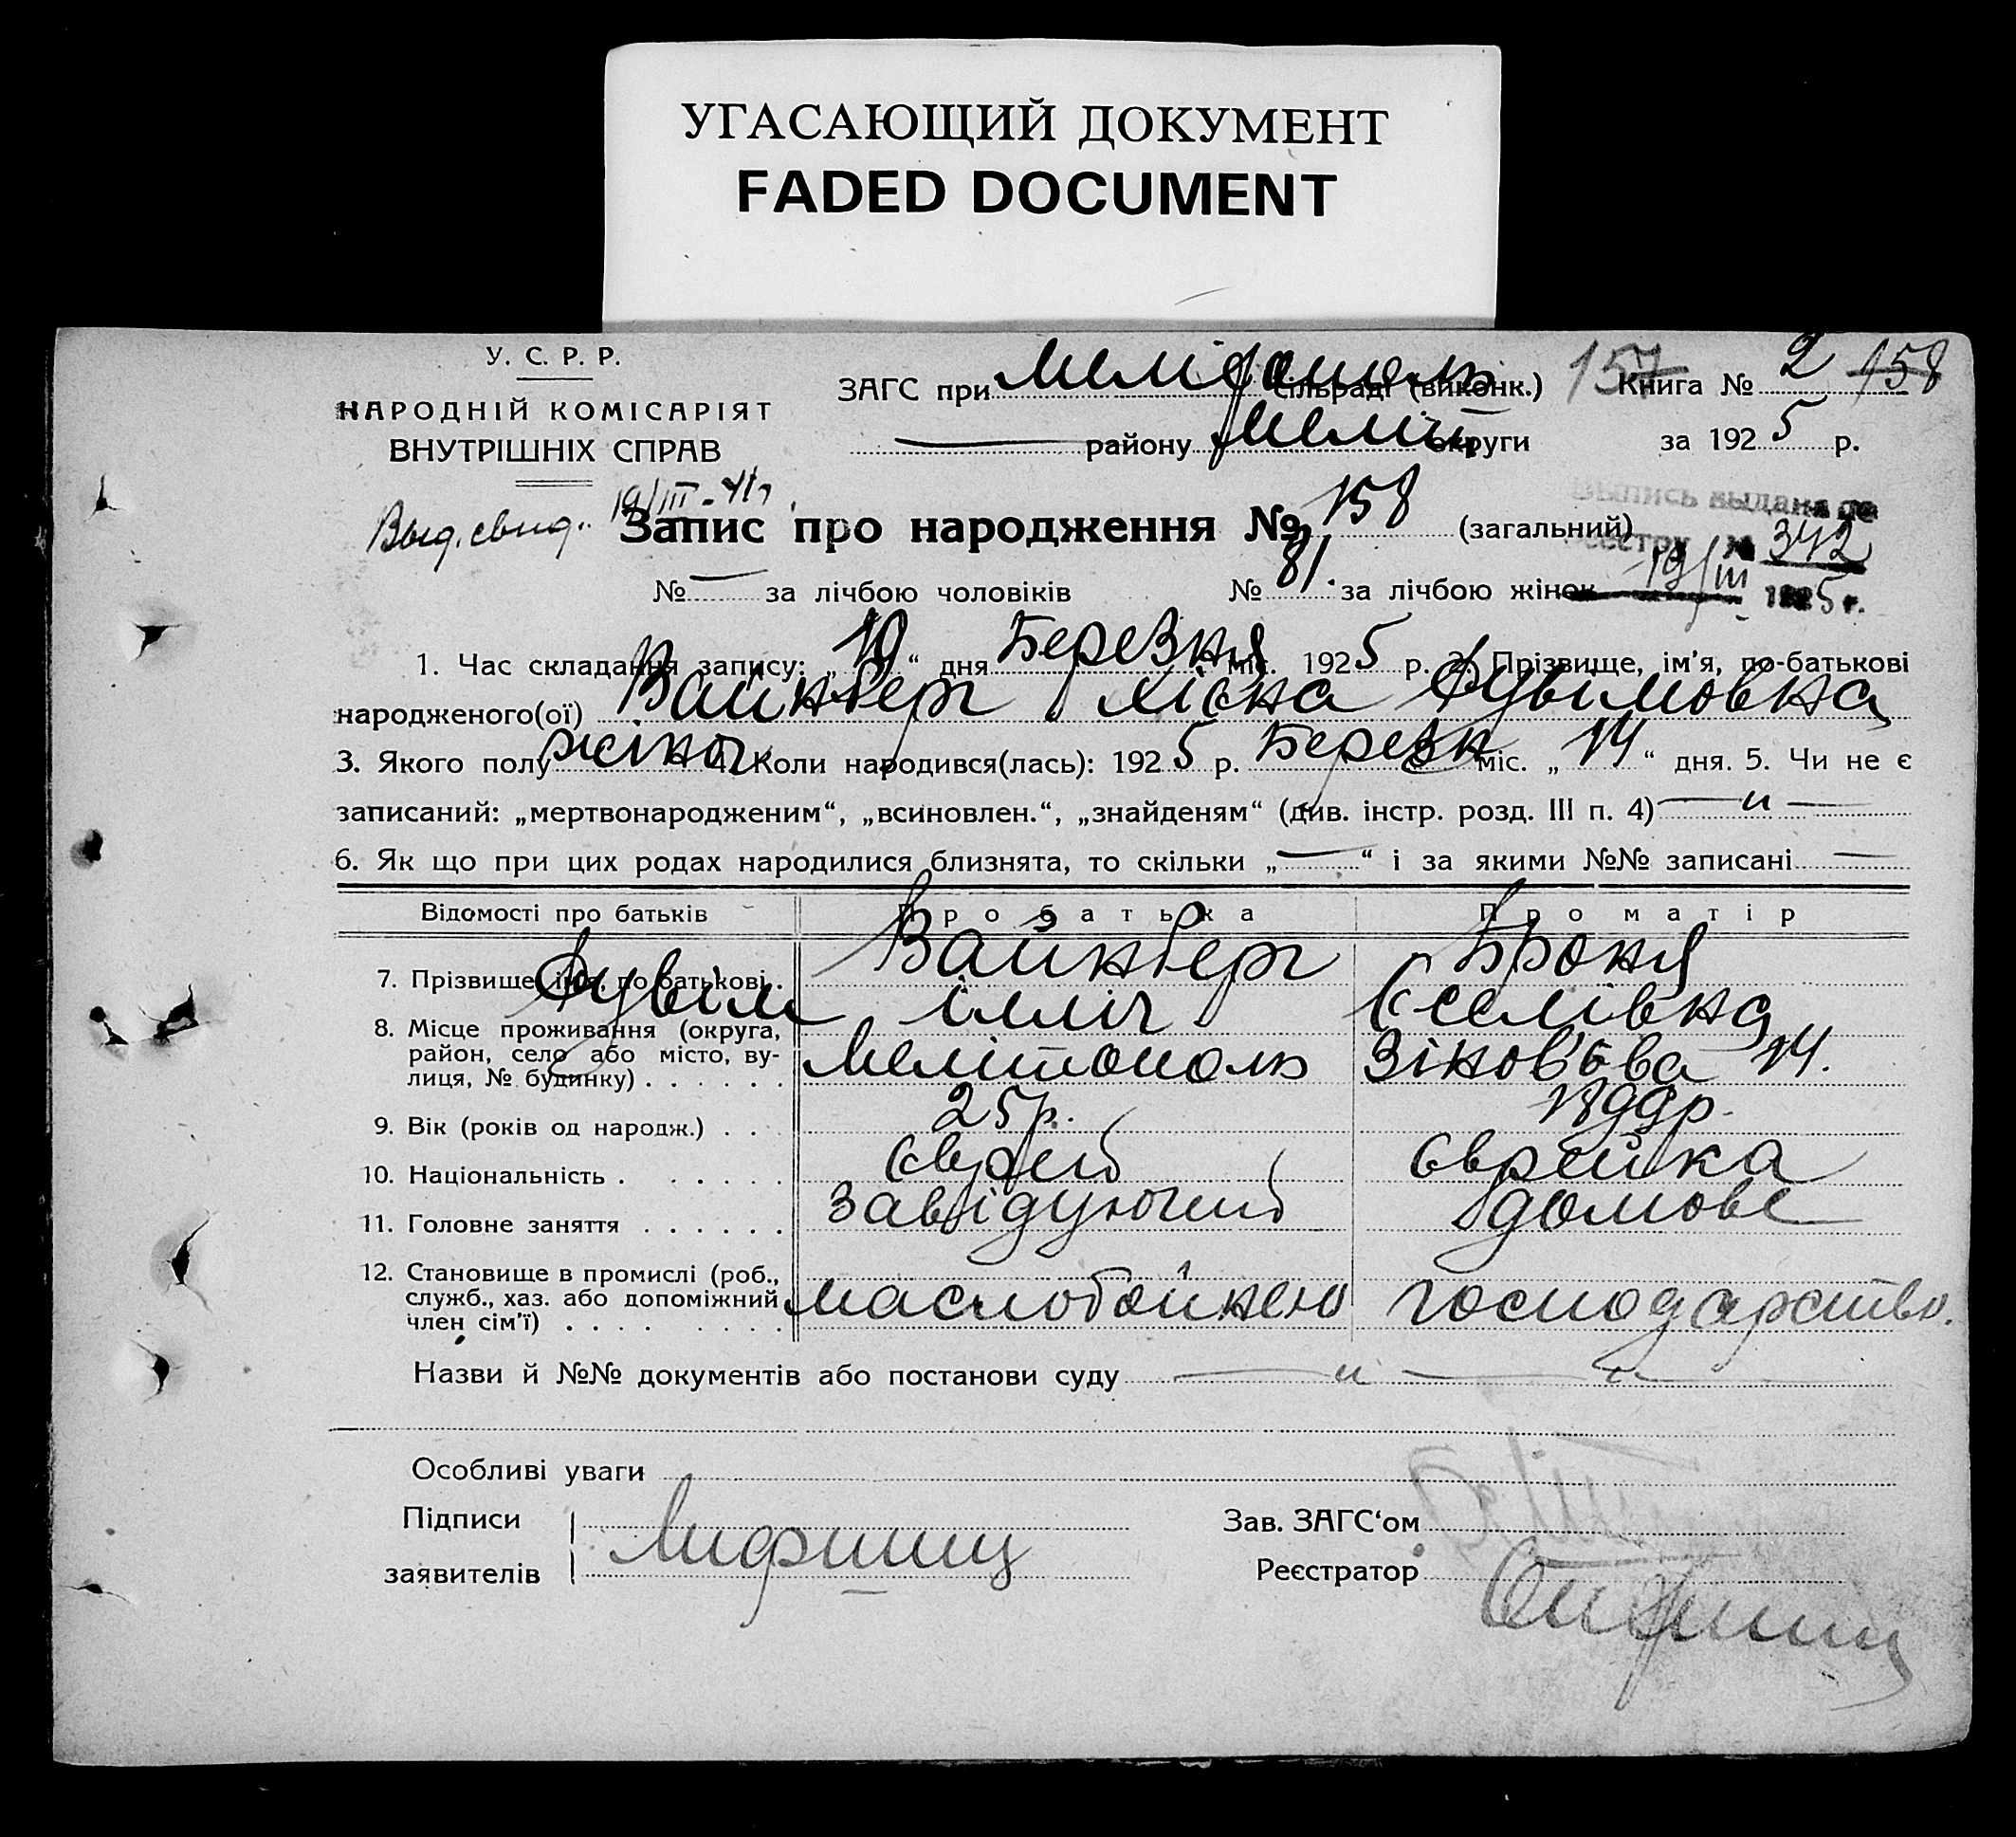 УГАСАЮЩИЙ ДОКУМЕНТ
FADED DOCUMENT
У. С. Р. Р.
НАРОДНІЙ КОМІСАРІЯТ
ВНУТРІШНІХ СПРАВ
ЗАГС при Мелітополь сільраді (виконк.)
157 Книга № 2 158
району Меліт округи за 1925 р.
Выд. свид. 19/III-41г.
Запис про народження № 158 (загальний)
Выпись выдана по
реестру № 342
19/III 1925 г.
№ — за лічбою чоловіків № 81. за лічбою жінок
1. Час складання запису: „19“ дня Березня міс. 1925 р. 2. Прізвище, ім'я, по-батькові
народженого(ої) Вайнберг Фувімовна
3. Якого полу жіноч 4. Коли народився(лась): 1925 р. Березн міс. „14“ дня. 5. Чи не є
записаний: „мертвонародженим“, „всиновлен.“, „знайденям“ (див. інстр. розд. III п. 4) — „ —
6. Як що при цих родах народилися близнята, то скільки „—“ і за якими №№ записані —
Відомості про батьків Про батька Про матір
7. Прізвище, ім'я, по батькові . Вайнберг Броня
Фувім Ілліч
8. Місце проживання (округа,
район, село або місто, ву-
лиця, № будинку) . . . . . . Мелітополь Зінов'єва 14.
9. Вік (років од народж.) . . 25 р.
10. Національність . . . . . . Єврей Єврейка
11. Головне заняття . . . . . . Завідуючий домове
12. Становище в промислі (роб.,
служб., хаз. або допоміжний
член сім'ї) . . . . . . . . маслобойнею господарство.
Назви й №№ документів або постанови суду — „ — „ —
Особливі уваги
Підписи
заявителів Лифшиц
Зав. ЗАГС'ом
Реєстратор